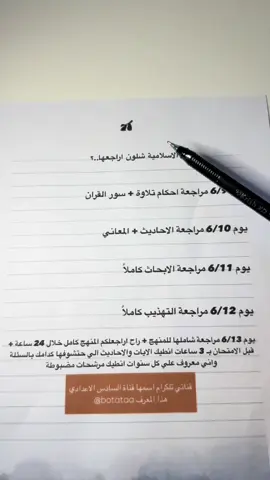 26
الاسلامية شلون اراجعها..؟
6/9 مراجعة احكام تلاوة + سور القران
يوم 6/10 مراجعة الاحاديث + المعاني
يوم 6/11 مراجعة الابحاث كاملاً
يوم 6/12 مراجعة التهذيب كاملاً
يوم 6/13 مراجعة شاملها للمنهج + راح اراجعلكم المنهج كامل خلال 24 ساعة +
قبل الامتحان بـ 3 ساعات انطيك الايات والاحاديث الي حتشوفها كدامك بالاسئلة
واني معروف علي كل سنوات انطيك مرشحات مضبوطة
قناتي تلكرام اسمها قناة السادس الاعدادي
هذا المعرف botataa@